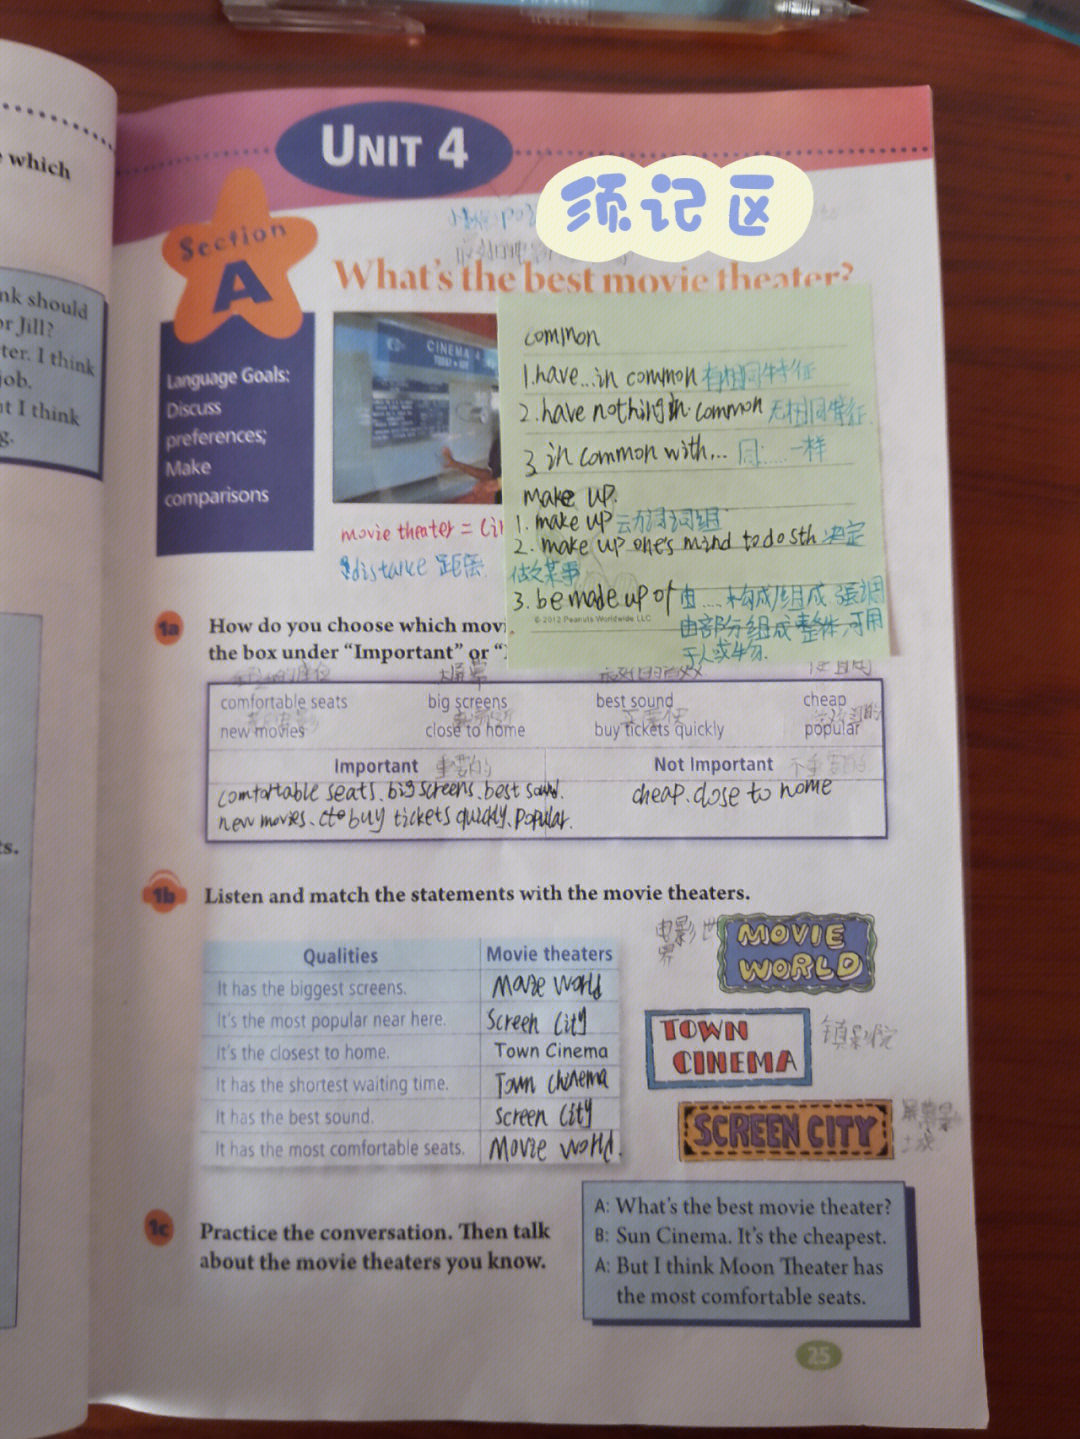 which
UNIT 4
须记区
Section
A
What's the best movie theater?
nk should
or Jill?
ter. I think
job.
ut I think
g.
Language Goals:
Discuss
preferences;
Make
comparisons
CINEMA 4
movie theater =
distance 距离
common
1.have...in common 有相同特征
2.have nothing in common 无相同特征
3 in common with... 同……一样
make up.
1. make up 动词词组
2. make up one's mind to do sth 决定
做某事
3. be made up of 由……构成/组成 强调
由部分组成整体,可用
于人或物.
© 2012 Peanuts Worldwide LLC
1a
How do you choose which movi
the box under “Important” or “
大屏幕
comfortable seats
big screens
best sound
cheap
new movies
close to home
buy tickets quickly
popular
Important 重要的
Not Important 不重要的
comfortable seats、big screens、best sound.
new movies、cto buy tickets quickly、popular.
cheap、close to home
ts.
1b
Listen and match the statements with the movie theaters.
Qualities
Movie theaters
It has the biggest screens.
Movie world
It's the most popular near here.
Screen City
It's the closest to home.
Town Cinema
It has the shortest waiting time.
Town Chinema
It has the best sound.
Screen City
It has the most comfortable seats.
Movie world.
电影世
界
MOVIE
WORLD
TOWN
CINEMA
镇影院
SCREEN CITY
1c
Practice the conversation. Then talk
about the movie theaters you know.
A: What's the best movie theater?
B: Sun Cinema. It's the cheapest.
A: But I think Moon Theater has
the most comfortable seats.
25